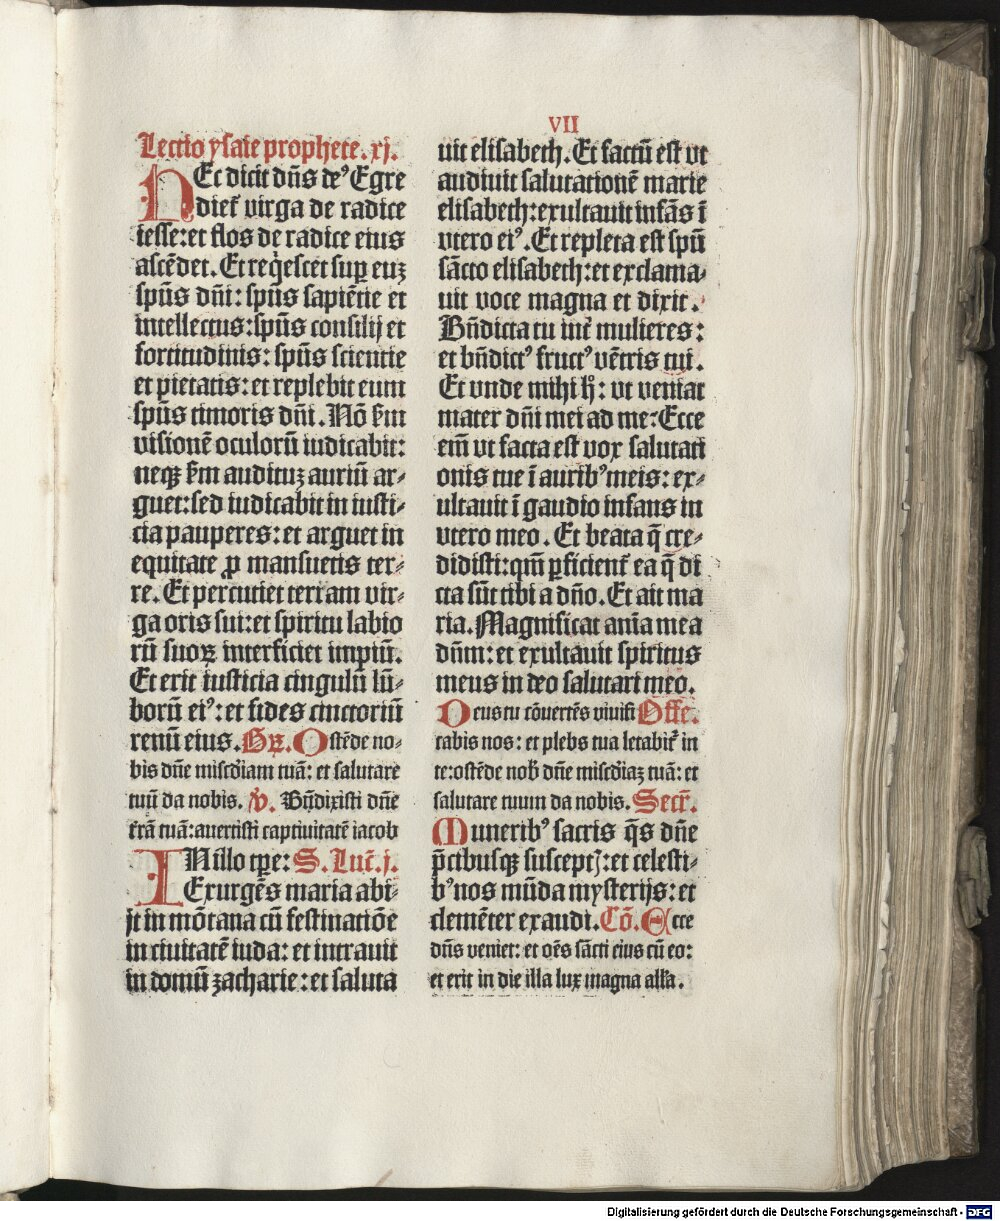 VII
Lectio ysaie prophete. xj.
HEc dicit dn̄s deꝰ Egre
dieť virga de radice
iesse: et flos de radice eius
ascēdet. Et req̇escet suꝑ euꝫ
spūs dn̄i: spūs sapiētie et
intellectus: spūs consilij et
fortitudinis: spūs scientie
et pietatis: et replebit eum
spūs timoris dn̄i. Nō ẜm
visionē oculorū iudicabit:
neqꝫ ẜm audituꝫ auriū ar⸗
guet: sed iudicabit in iusti⸗
cia pauperes: et arguet in
equitate ꝓ mansuetis ter⸗
re. Et percutiet terram vir⸗
ga oris sui: et spiritu labio
rū suoꝝ interficiet impiū.
Et erit iusticia cingulū lū⸗
borū eiꝰ: et fides cinctoriū
renū eius. Gꝝ. Ostēde no⸗
bis dn̄e miscd̄iam tuā: et salutare
tuū da nobis. v̄. Bn̄dixisti dn̄e
ťrā tuā: auertisti captiuitatē iacob
INillo tꝑe: S. Luc̄. j.
Exurgēs maria abi⸗
jt in mōtana cū festinatiōe
in ciuitatē iuda: et intrauit
in domū zacharie: et saluta
uit elisabeth. Et factū est vt
audiuit salutationē marie
elisabeth: exultauit infās ī
vtero eiꝰ. Et repleta est spū
sācto elisabeth: et exclama⸗
uit voce magna et dixit.
Bn̄dicta tu inť mulieres:
et bn̄dictꝰ fructꝰ vētris tui.
Et vnde mihi h̊: vt veniat
mater dn̄i mei ad me: Ecce
em̄ vt facta est vox salutati
onis tue ī auribꝰ meis: ex⸗
ultauit ī gaudio infans in
vtero meo. Et beata q̄ cre⸗
didisti: qm̄ ꝑficient̄ ea q̄ di
cta sūt tibi a dn̄o. Et ait ma
ria. Magnificat anīa mea
dn̄m: et exultauit spiritus
meus in deo salutari meo.
Deus tu cōuertēs viuifi Offe.
cabis nos: et plebs tua letabiť in
te: ostēde nob̄ dn̄e miscd̄iaꝫ tuā: et
salutare tuum da nobis. Secr̄.
Muneribꝰ sacris q̄s dn̄e
p̄cibusqꝫ susceptꝭ: et celesti⸗
bꝰ nos mūda mysterijs: et
clemēter exaudi. Cō. Ecce
dn̄s veniet: et oēs sācti eius cū eo:
et erit in die illa lux magna alľa.
Digitalisierung gefördert durch die Deutsche Forschungsgemeinschaft - DFG